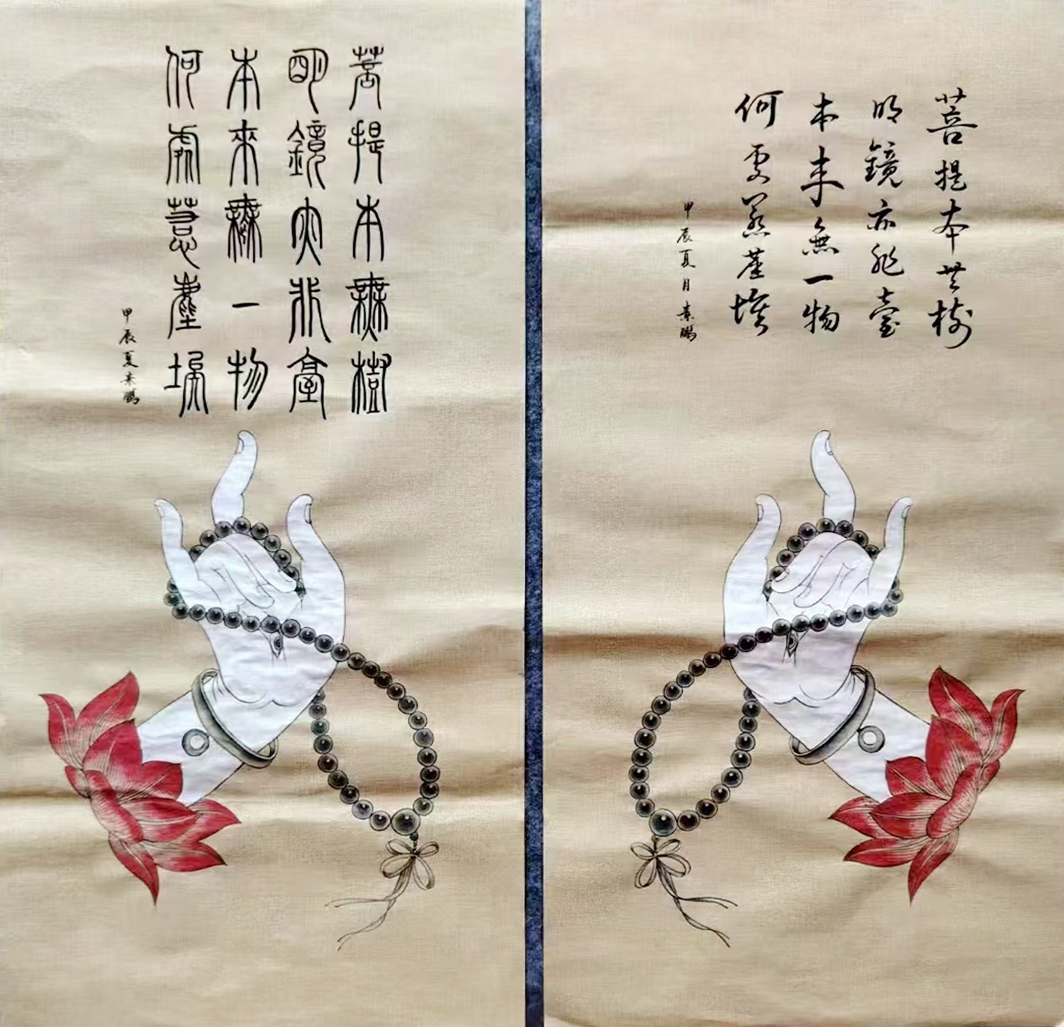 菩提本無樹
明鏡亦非臺
本來無一物
何處惹塵埃
甲辰夏月素鵬
菩提本無樹
明鏡亦非臺
本來無一物
何處惹塵埃
甲辰夏素鵬